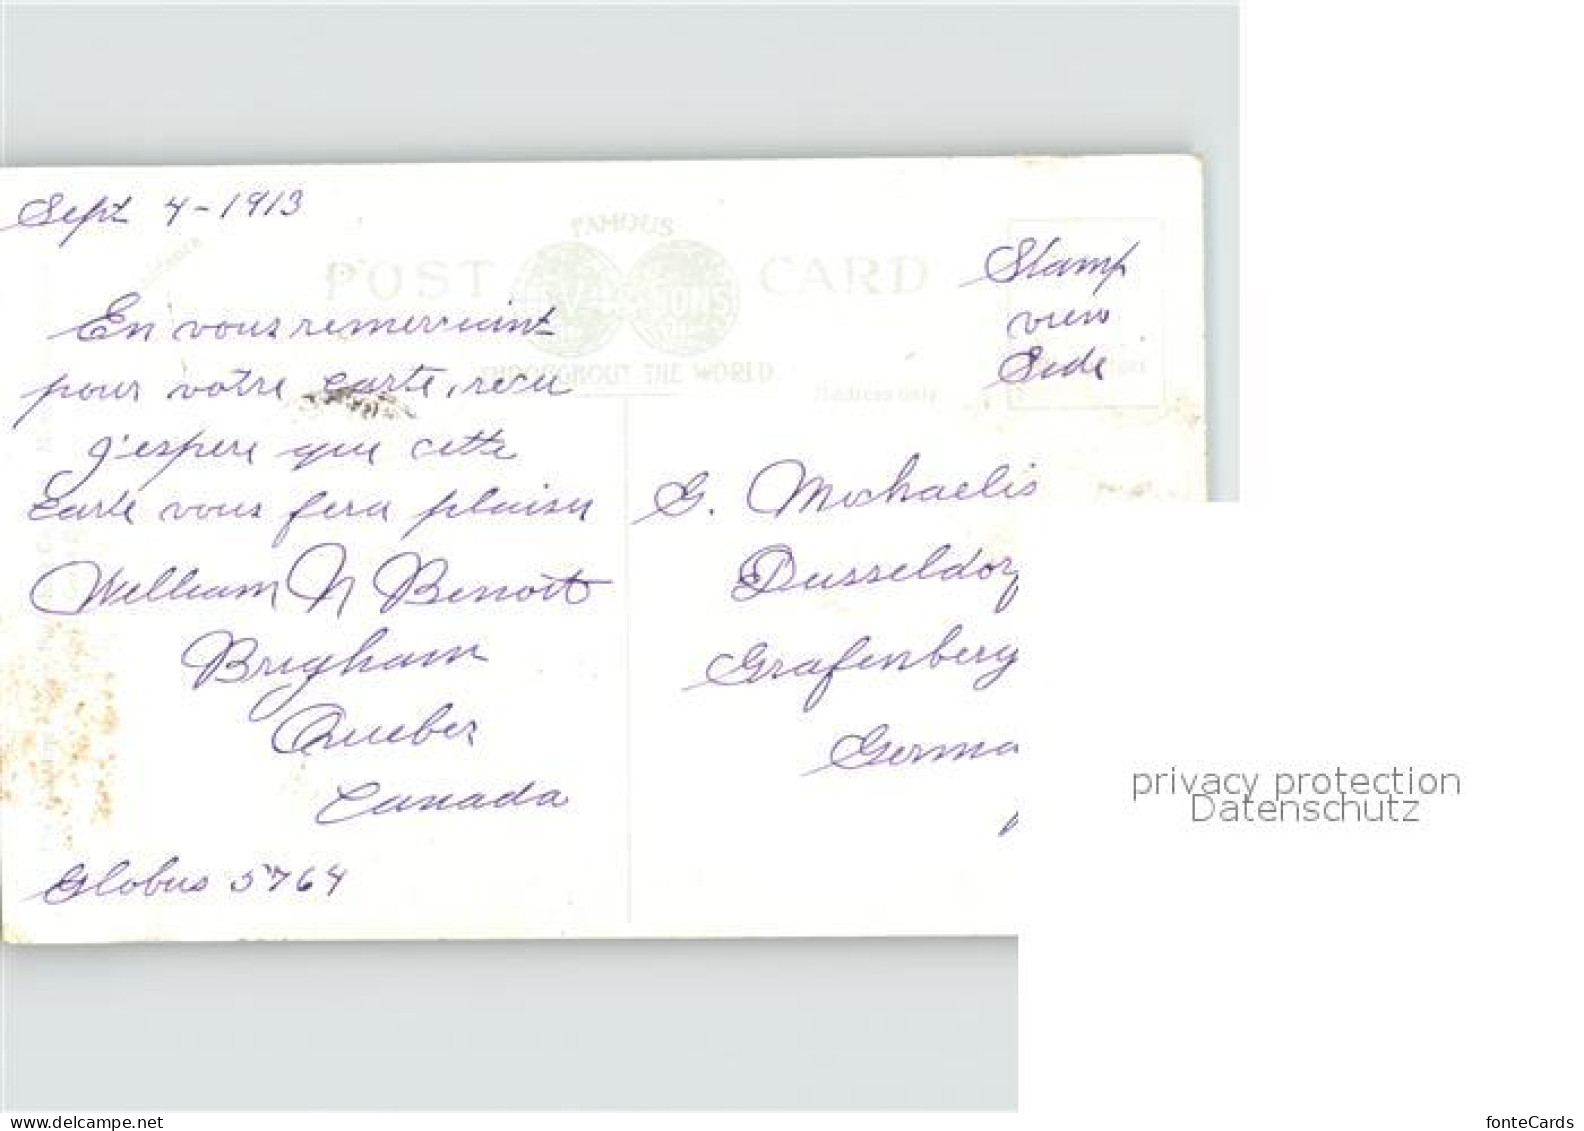 Sept 4-1913
FAMOUS
POST CARD
THROUGHOUT THE WORLD
Stamp
view
Side
En vous remerciant
pour votre carte, recu
j'espere que cette
carte vous fera plaisir
William N Benoit
Brigham
Quebec
Canada
Globus 5764
G. Michaelis
Dusseldorf
Grafenberg
Germa
privacy protection
Datenschutz
www.delcampe.net
fonteCards